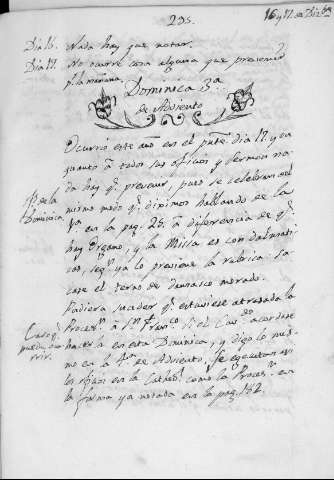 295.
16 y 17 de Dizbre
Dia 16. Nada hay que notar.
Dia 17. No ocurre cosa alguna que prevenir
pr. la mañana.
Dominica 3.ª
de Adviento
Ocurrio este año en el pnte. dia 17. y en
quanto â todos sus oficios y sermon na-
da hay qe. prevenir, pues se celebran del
mismo modo qe. diximos hablando de la
1ª. en la pag. 25. â diferencia de qe.
hay Organo, y la Missa es con dalmati-
cas, segn. ya lo previene la rubrica: sa-
case el terno de damasco morado.
Of.s de la
Dominica
Pudiera suceder qe. estuviese atrasada la
Procesn. â Sn. Franco. si el Cavdo. acordase
hacerla en esta Dominica, y digo lo mis-
mo en la 4ª. de Adviento. Se egecutan en
los oficios en la Cathedl. como la Procesn. en
la forma ya notada en la pag. 182.
Caso q.
puede ocu-
rrir.